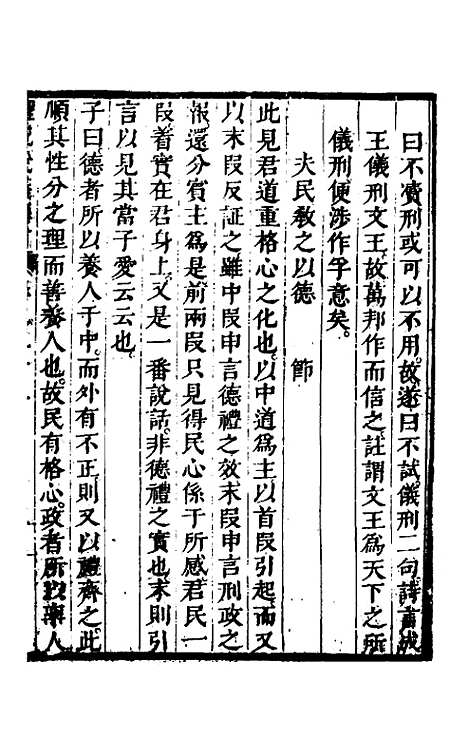 曰不凟刑或可以不用。故遂曰不試。儀刑二句。詩言成
王儀刑文王。故萬邦作而信之。註謂文王爲天下之所
儀刑。便涉作孚意矣。
夫民敎之以德　節
此見君道重格心之化也。以中道爲主。以首段引起。而又
以末段反証之。雖中段申言德禮之效。末段申言刑政之
報。還分賓主爲是。前兩段只見得民心係于所感。君民一
段着實在君身上。又是一番說話。非德禮之實也。末則引
言以見其當子愛云云也。
子曰。德者所以養人于中。而外有不正。則又以禮齊之。此
順其性分之理。而善養人也。故民有格心。政者所以藥人